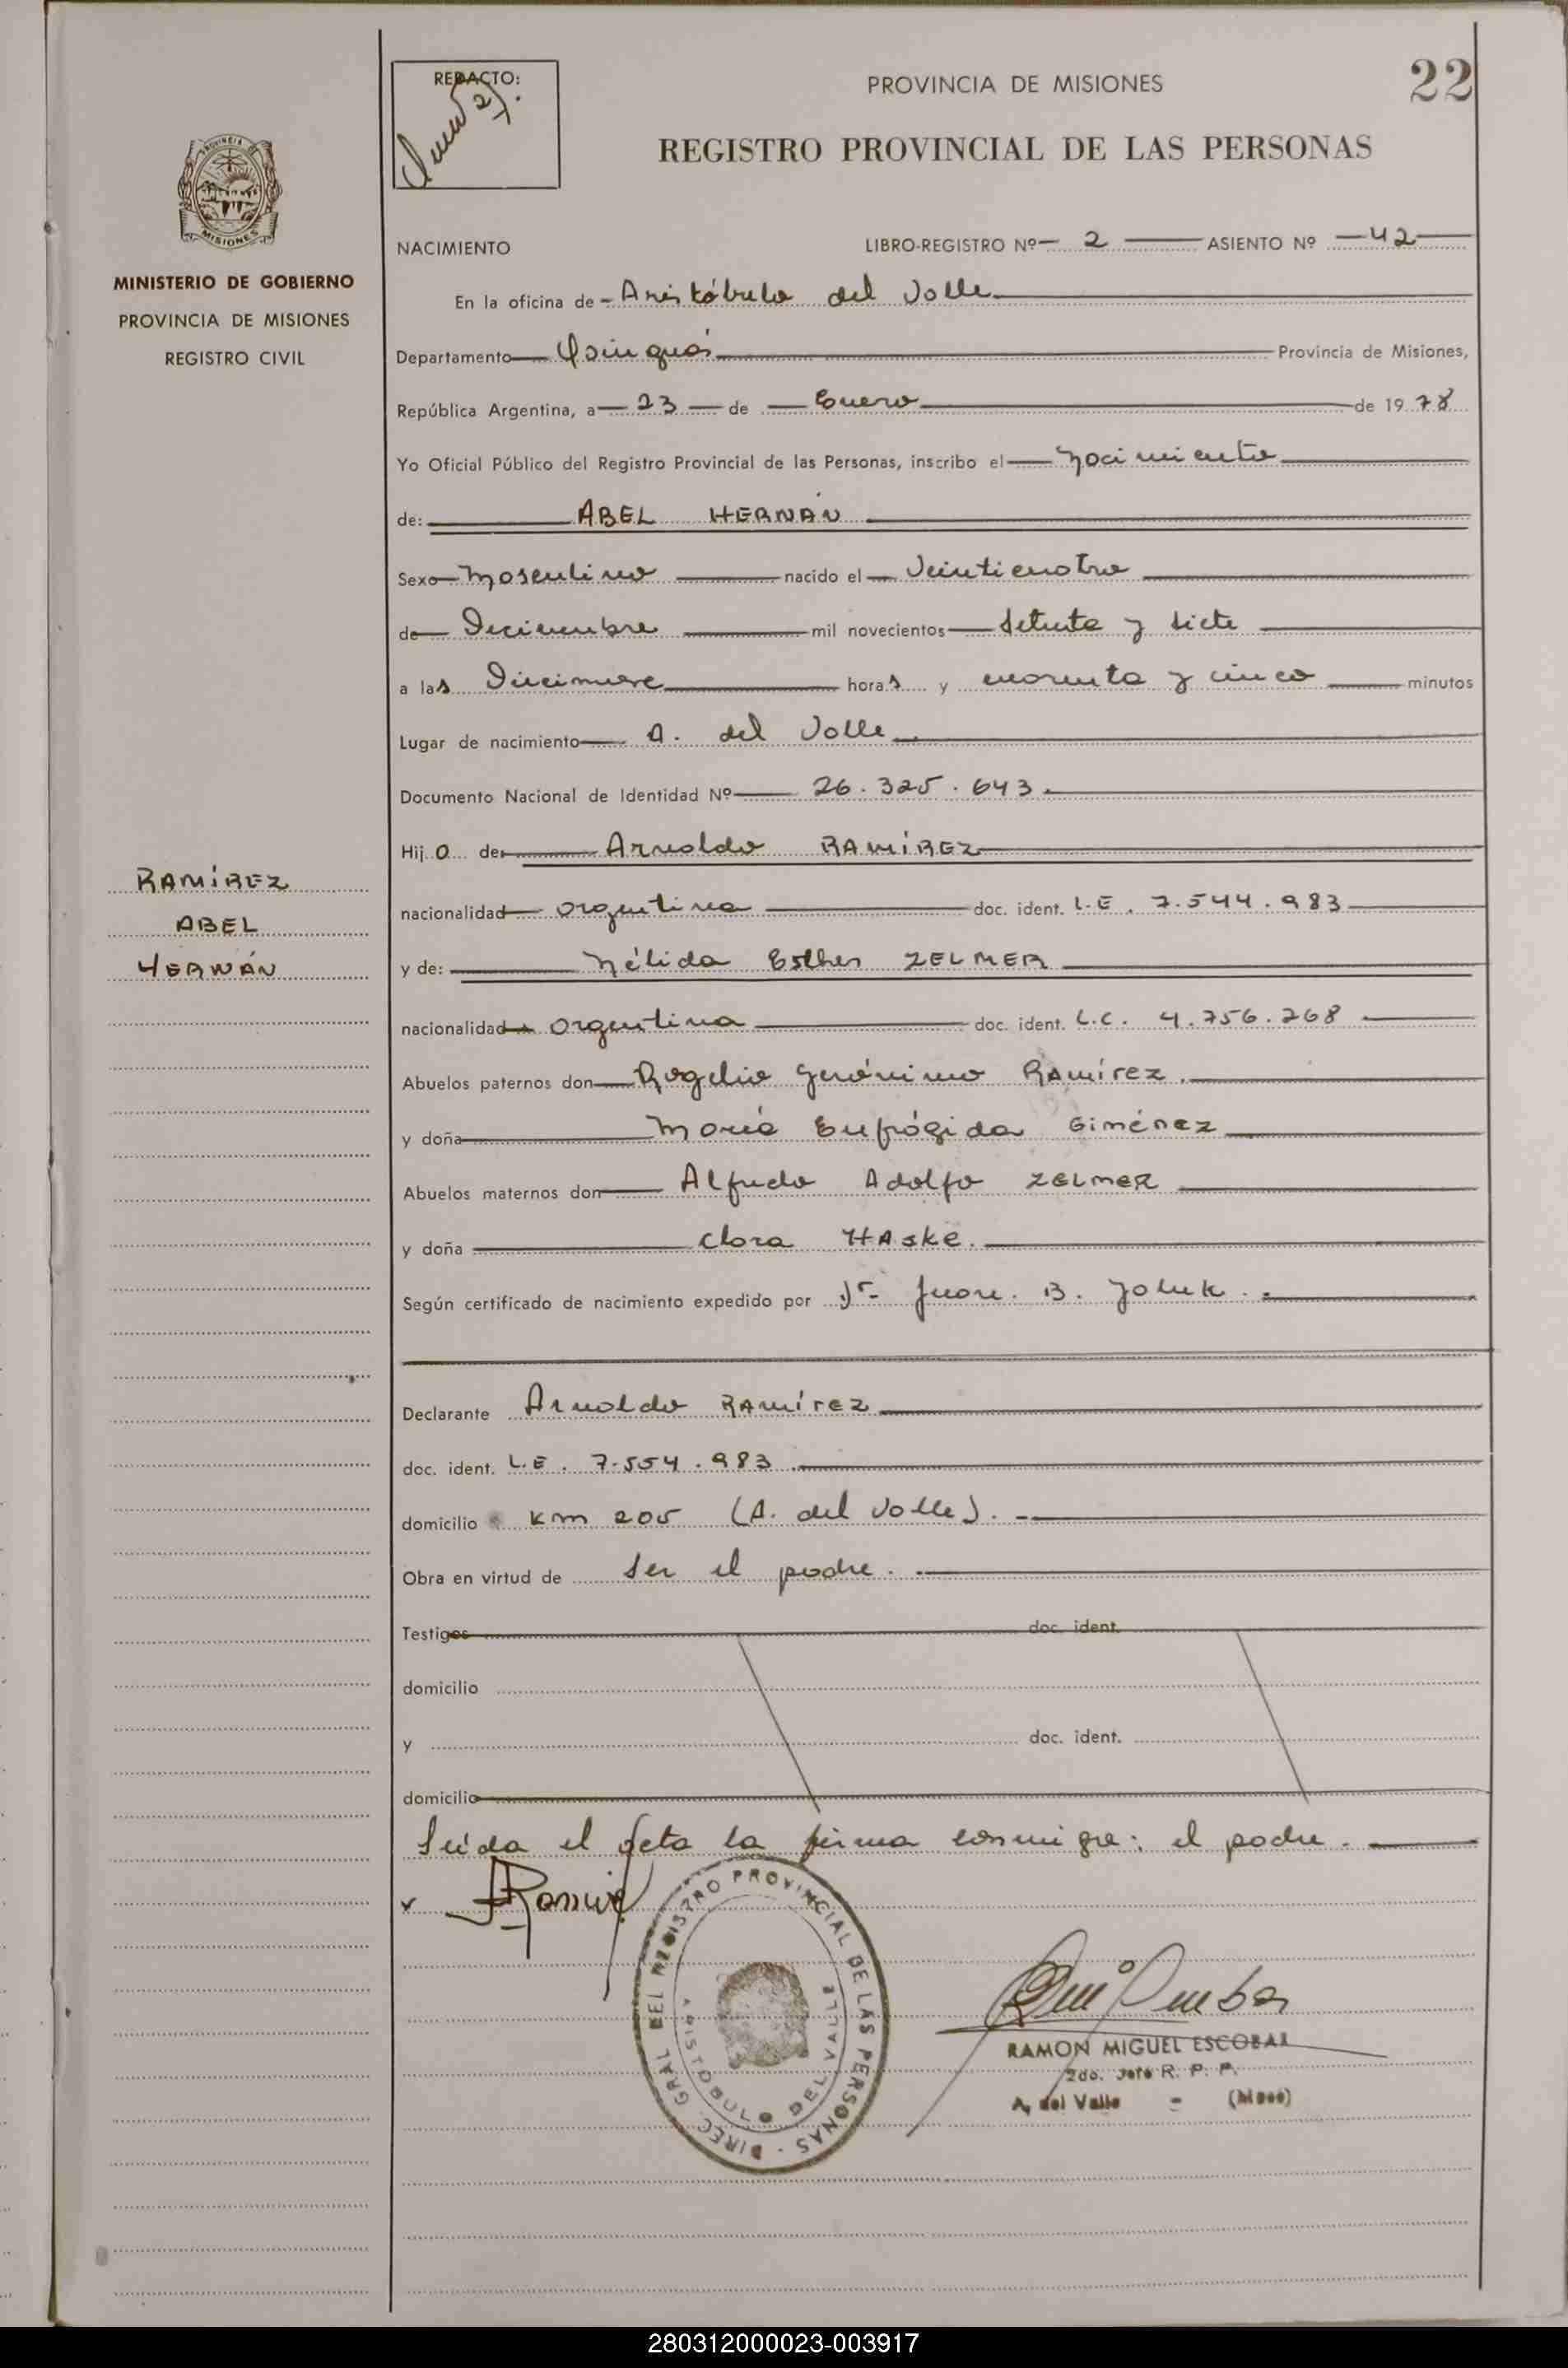 22
REDACTO:
PROVINCIA DE MISIONES
REGISTRO PROVINCIAL DE LAS PERSONAS
PROVINCIA DE
MISIONES
MINISTERIO DE GOBIERNO
PROVINCIA DE MISIONES
REGISTRO CIVIL
NACIMIENTO LIBRO-REGISTRO Nº 2 ASIENTO Nº 42
En la oficina de Aristóbulo del Valle
Departamento Cainguás Provincia de Misiones,
República Argentina, a 23 de Enero de 1978
Yo Oficial Público del Registro Provincial de las Personas, inscribo el Nacimiento
de: ABEL HERNÁN
Sexo Masculino nacido el Veinticuatro
de Diciembre mil novecientos Setenta y siete
a las Diecinueve horas y cuarenta y cinco minutos
Lugar de nacimiento A. del Valle
Documento Nacional de Identidad Nº 26.325.643.
Hijo de Arnoldo RAMÍREZ
nacionalidad argentina doc. ident. L.E. 7.544.983
y de: Nélida Esther ZELMER
nacionalidad argentina doc. ident. L.C. 4.756.268
Abuelos paternos don Rogelio Gerónimo RAMÍREZ.
y doña María Eufrógida Giménez
Abuelos maternos don Alfredo Adolfo ZELMER
y doña Clara HAske.
Según certificado de nacimiento expedido por Dr. Juan. B.
RAMÍREZ
ABEL
HERNÁN
Declarante Arnoldo RAMÍREZ
doc. ident. L.E. 7.554.983
domicilio Km 205 (A. del Valle).
Obra en virtud de ser el padre.
Testigos doc. ident.
domicilio
y doc. ident.
domicilio
Leída el acta la firma conmigo: el padre.
DIREC. GRAL DEL REGISTRO PROVINCIAL DE LAS PERSONAS -
ARISTOBULO DEL VALLE
RAMON MIGUEL ESCOBAR
2do. Jefe R. P. P.
A. del Valle - (Mnes)
280312000023-003917